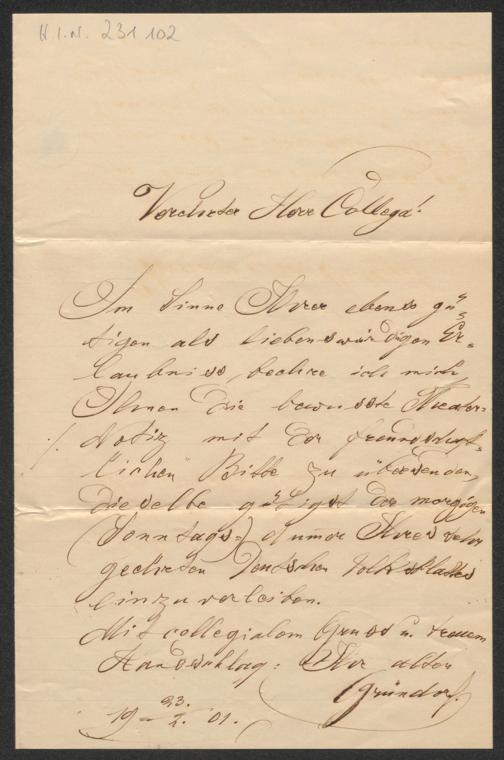 H.I.N. 231102
Verehrter Herr Collega!
Im Sinne Ihrer ebenso gü-
tigen als liebenswürdigen Er-
laubniss, beehre ich mich
Ihnen die bewusste Theater-
./. Notiz mit der freundschaft-
lichen Bitte zu übersenden,
dieselbe gütigst der morgigen
(Sonntags-) Numer Ihres sehr
geehrten Deutschen Volksblattes
einzuverleiben.
Mit collegialem Gruss u. treuem
Handschlag: Ihr alter
Gründorf.
19 23./2. 01.